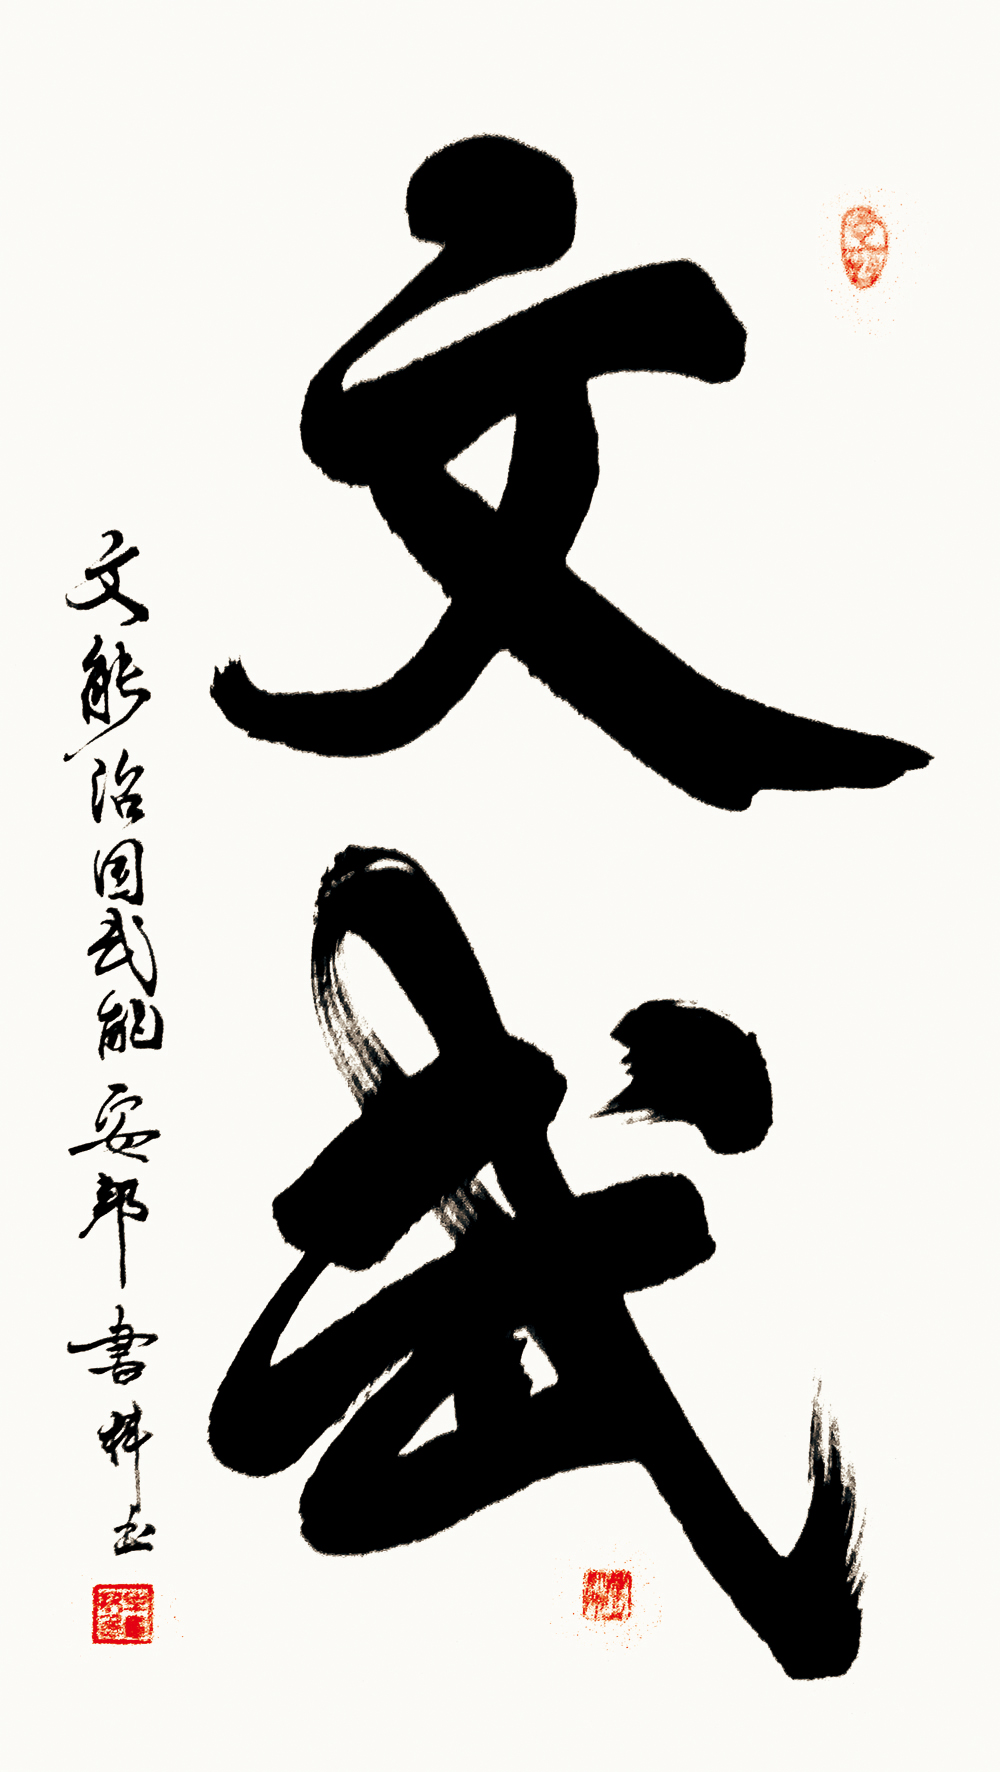 文武
文能治国武能安邦 書